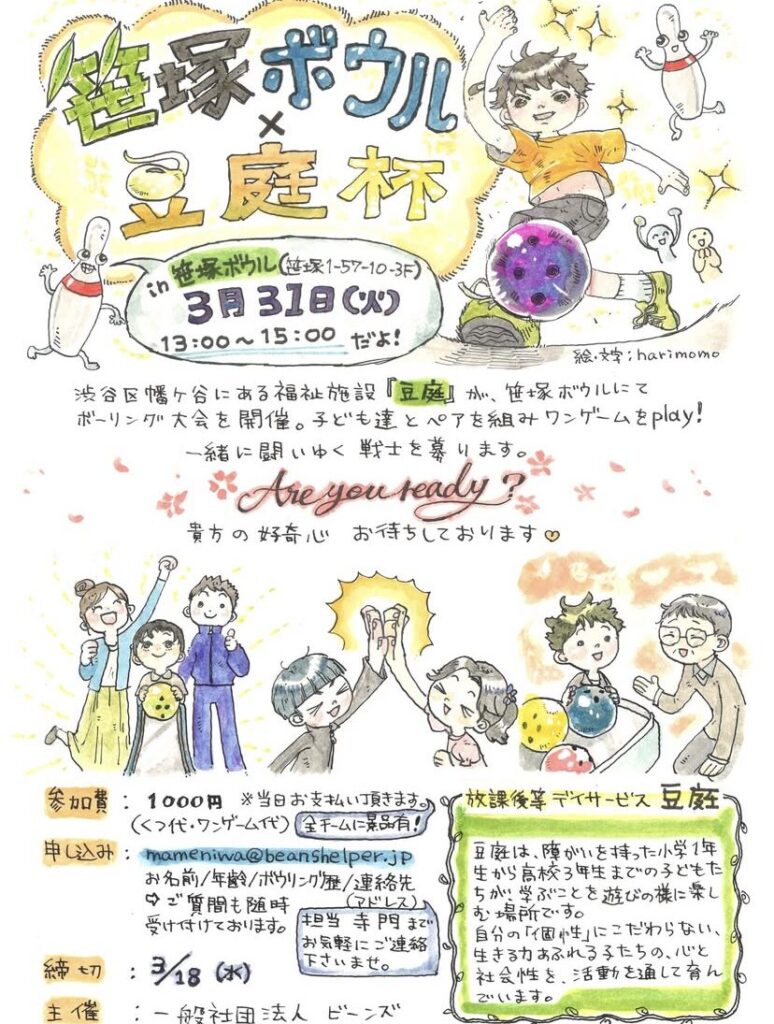 笹塚ボウル
×
豆庭杯
in 笹塚ボウル(笹塚1-57-10-3F)
3月31日(火)
13:00〜15:00 だよ!
絵・文字:harimomo
渋谷区幡ヶ谷にある福祉施設『豆庭』が、笹塚ボウルにて
ボーリング大会を開催。子ども達とペアを組みワンゲームをplay!
一緒に闘いゆく戦士を募ります。
Are you ready?
貴方の好奇心 お待ちしております
参加費 : 1000円 ※当日お支払い頂きます。
(くつ代・ワンゲーム代) 全チームに景品有!
申し込み : mameniwa@beanshelper.jp
お名前/年齢/ボウリング歴/連絡先
(アドレス)
⇨ご質問も随時
受け付けております。
担当 寺門まで
お気軽にご連絡
下さいませ。
締切 : 3/18(水)
主催 : 一般社団法人 ビーンズ
放課後等デイサービス 豆庭
豆庭は、障がいを持った小学1年
生から高校3年生までの子どもた
ちが、学ぶことを遊びの様に楽し
む場所です。
自分の「個性」にこだわらない、
生きる力あふれる子たちの、心と
社会性を、活動を通して育ん
でいます。